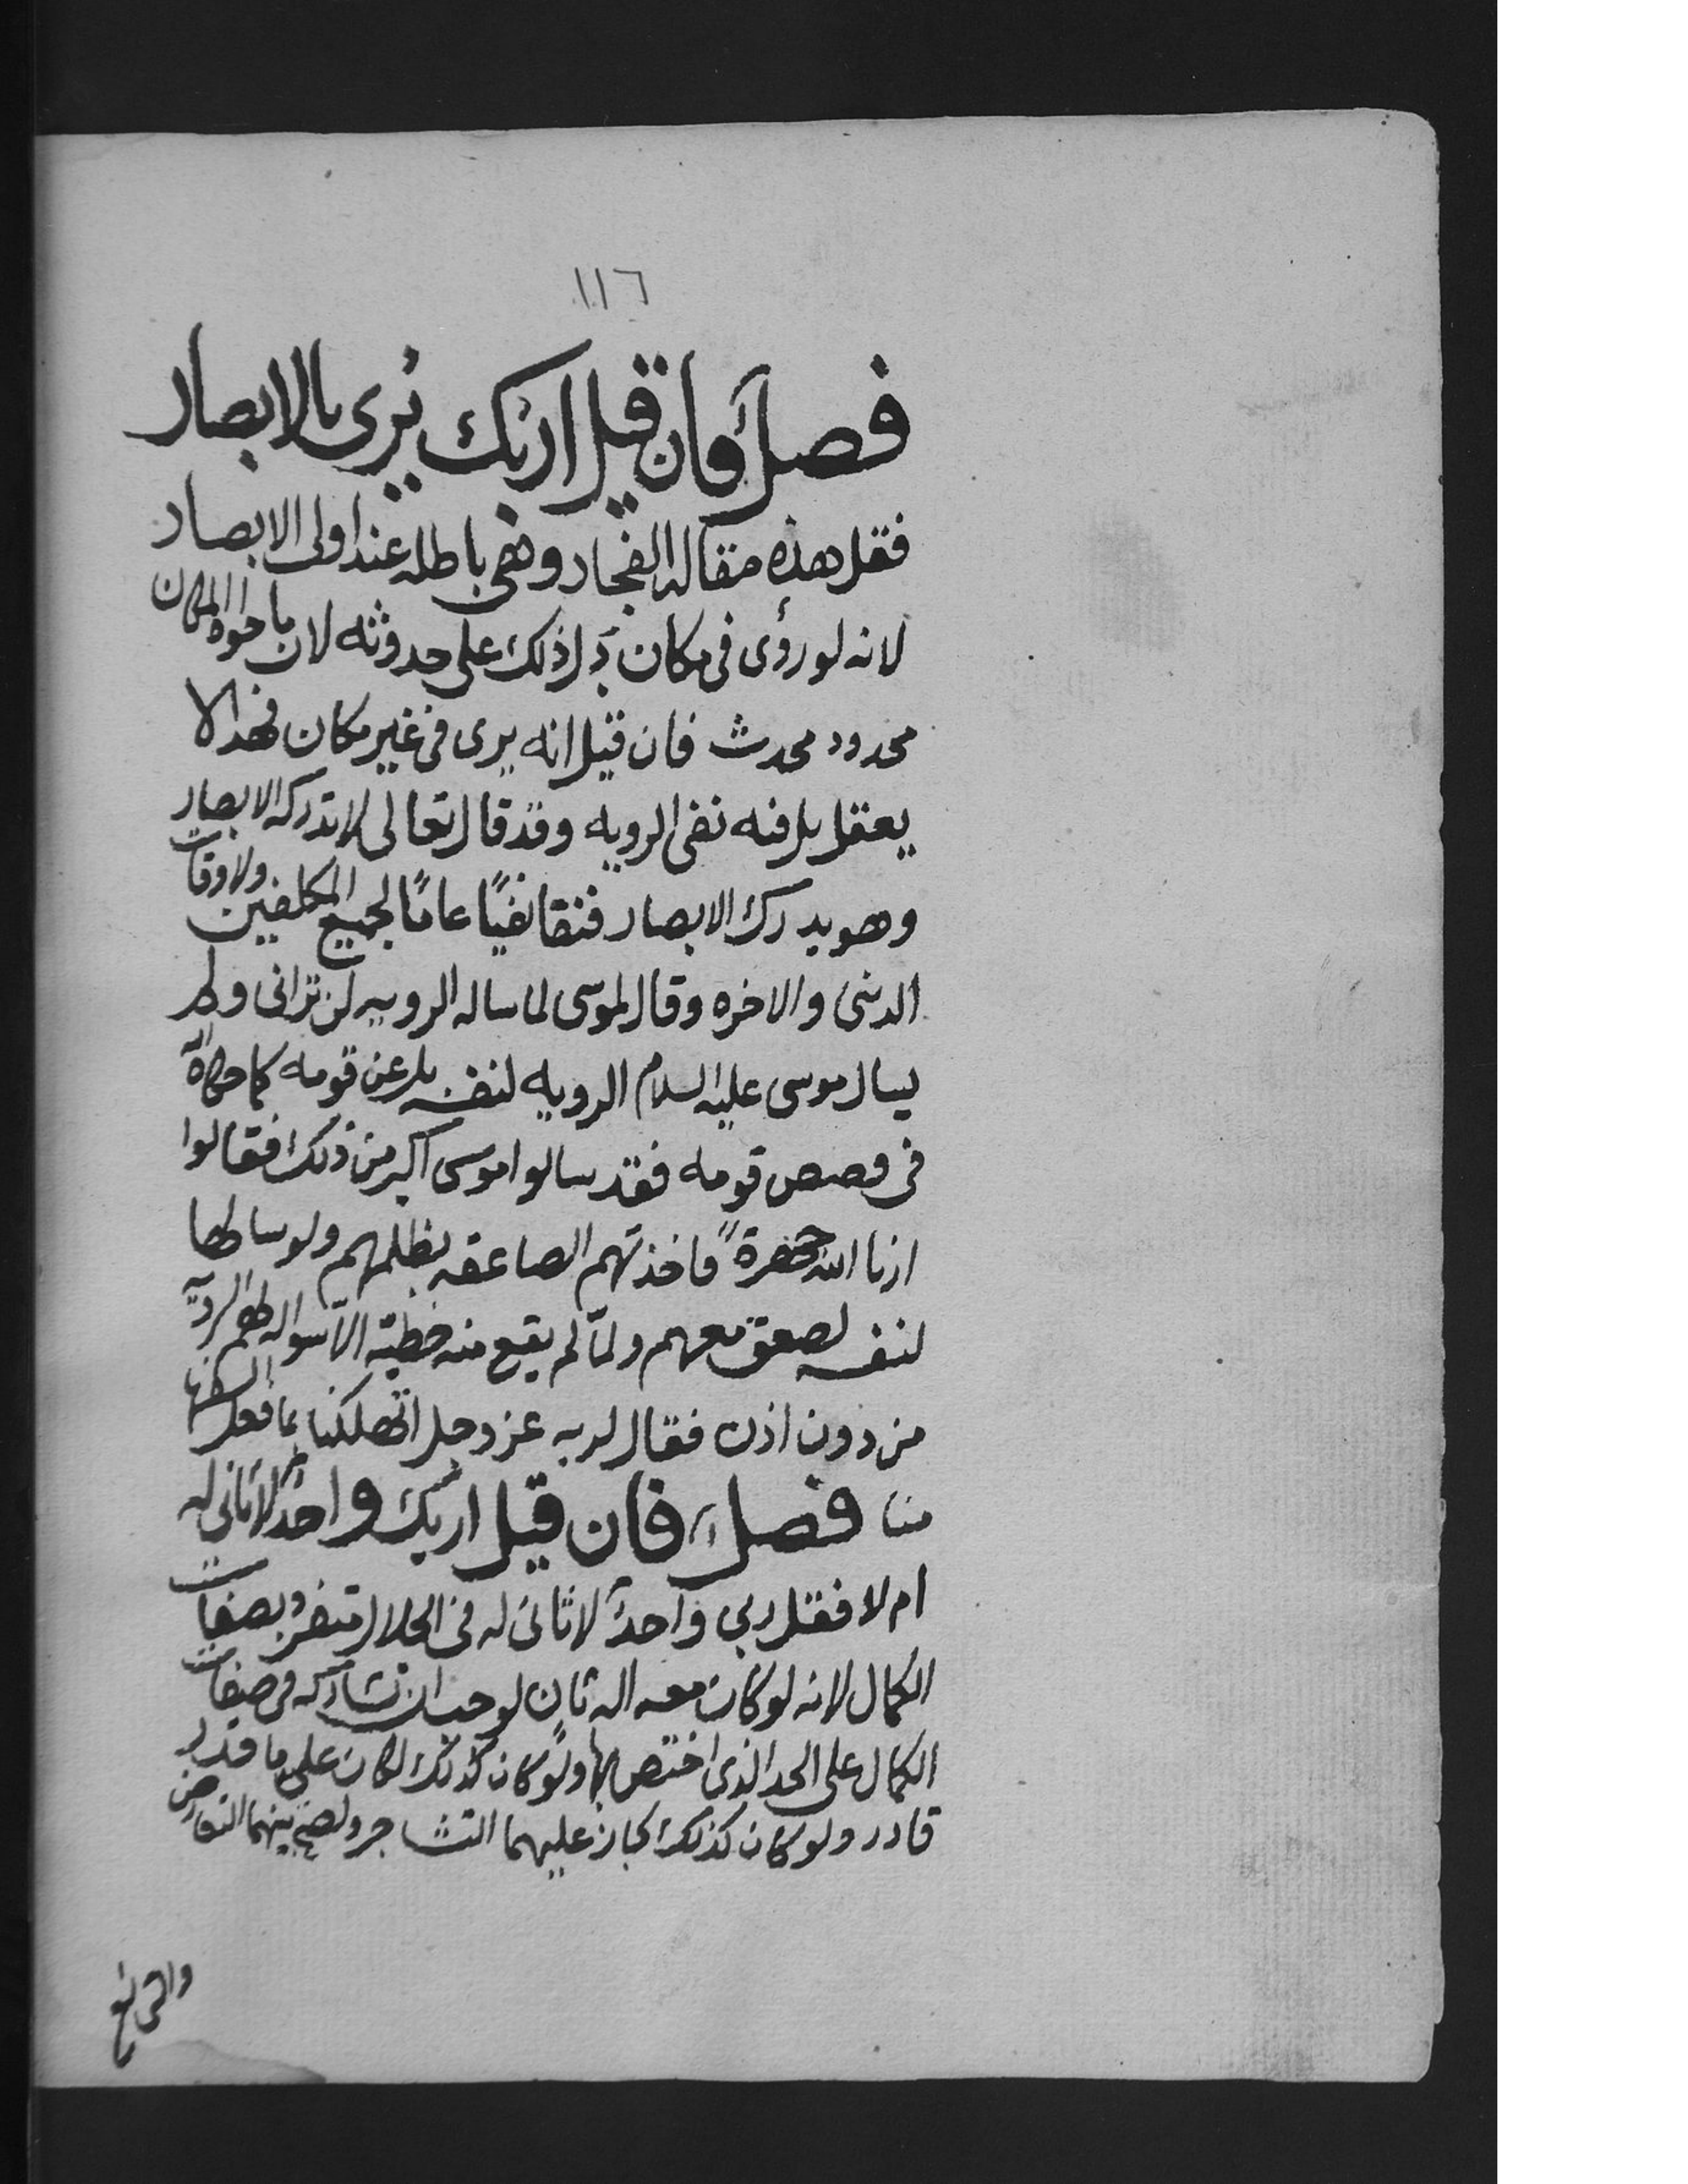 ١١٦
فصل فان قيل اربك يُرى بالابصار
فقل هذه مقاله الفجار وهى باطله عند اولى الابصار
لانه لو رؤى فى مكان دل ذلك على حدوثه لان ما حواه المكان
محدود محدث فان قيل انه يرى فى غير مكان فهذا لا
يعقل بل فيه نفى الرويه وقد قال تعالى لا تدركه الابصار
وهو يدرك الابصار فنفا نفيًا عامًا لجميع المكلفين ولاوقات
الدنى والاخره وقال لموسى لما ساله الرويه لن ترانى ولم
يسال موسى عليه السلام الرويه لنفسه بل عن قومه كما حكاه الله
فى قصص قومه فقد سالوا موسى اكبر من ذلك فقالوا
ارنا الله جهرة فاخذتهم الصاعقه بظلمهم ولو سالها
لنفسه لصعق معهم ولمّا لم يقع منه خطية الّا سواله لهم الروية
من دون اذن فقال لربه عز وجل اتهلكنا بما فعل السفهاء
منا فصل فان قيل اربك واحدٌ لا ثانى له
ام لا فقل ربي واحدٌ لا ثانى له فى الجلال متفردٌ بصفات
الكمال لانه لو كان معه اله ثان لوجب ان تشاركه فى صفات
الكمال على الحد الذى اختص بها ولو كان كذلك لكان على ما قدر
قادر ولو كان كذلك لجاز عليهما التشاجر ولصح بينهما التعارض
والتى نع